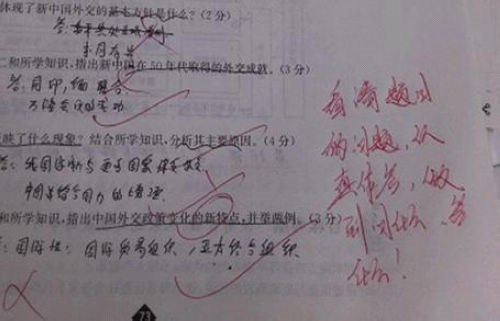 体现了新中国外交的基本方针是什么?(2分)
答:
求同存异
二和所学知识,指出新中国在50年代取得的外交成就。(3分)
答:同印,缅
万隆会议的成功
反映了什么现象?结合所学知识,分析其主要原因。(4分)
答:我国 与 国家
中国综合国力的增强
和所学知识,指出中国外交政策变化的新特点,并举两例。(3分)
国际 组织,亚太经合组织
看清题目
的问题,认
真作答,做
到问什么答
什么!
73